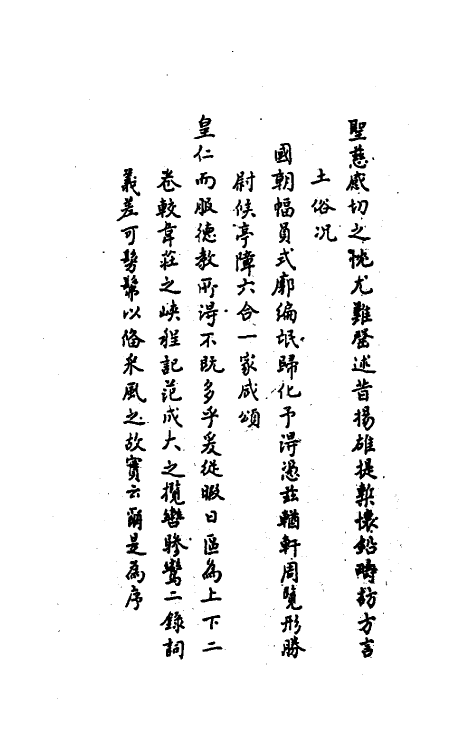 聖慈感切之忱尤難罄述昔揚雄提槧懷鉛時訪方言
土俗况
國朝幅員式廓編氓歸化予得憑茲輶軒周覽形勝
尉候亭障六合一家咸頌
皇仁而服德教所得不既多乎爰從暇日區為上下二
卷較韋莊之峽程記范成大之攬轡驂鸞二錄詞
義差可髣髴以備采風之故實云爾是為序